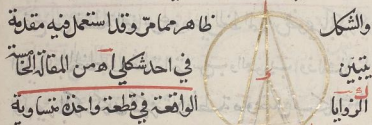 والشكل ظاهر مما مرّ وقد استعمل فيه مقدمة
يتبين في احد شكلي ا ه من المقالة الخامسة
الزوايا الواقعة في قطعة واحدة متساوية